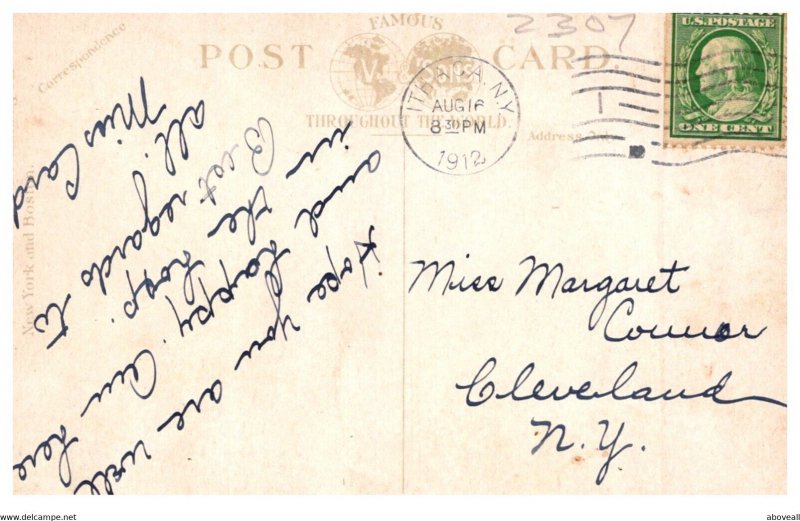 2307
FAMOUS
POST CARD
V. & SONS
THROUGHOUT THE WORLD.
Correspondence
Address
New York and Boston.
ITHACA, N.Y.
AUG 16
8 30 PM
1912
U.S. POSTAGE
ONE CENT
Hope you are well
and happy. Am here
in the hosp.
Best regards to
all.
Miss Card
Miss Margaret
Connor
Cleveland
N.Y.
https://www.hippostcard.com
aboveall